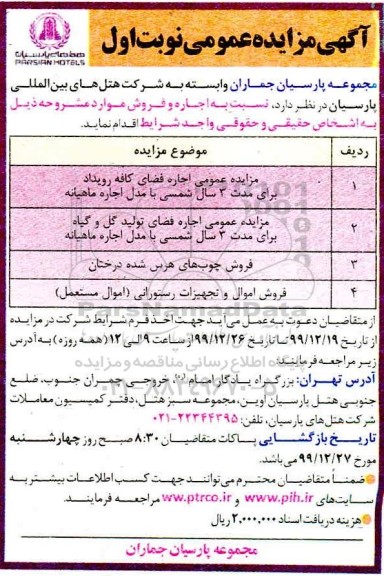 آگهی مزایده عمومی نوبت اول
هتلهای پارسیان
PARSIAN HOTELS
مجموعه پارسیان جماران وابسته به شرکت هتل های بین المللی
پارسیان در نظر دارد، نسبت به اجاره و فروش موارد مشروحه ذیل
به اشخاص حقیقی و حقوقی واجد شرایط اقدام نماید.
ردیف موضوع مزایده
۱ مزایده عمومی اجاره فضای کافه رویداد
برای مدت ۳ سال شمسی با مدل اجاره ماهیانه
۲ مزایده عمومی اجاره فضای تولید گل و گیاه
برای مدت ۳ سال شمسی با مدل اجاره ماهیانه
۳ فروش چوب‌های هرس شده درختان
۴ فروش اموال و تجهیزات رستورانی (اموال مستعمل)
از متقاضیان دعوت به عمل می آید جهت اخذ فرم شرایط شرکت در مزایده
از تاریخ ۹۹/۱۲/۱۹ تا تاریخ ۹۹/۱۲/۲۶ از ساعت ۹ الی ۱۲ (همه روزه) به آدرس
زیر مراجعه فرمایند.
آدرس تهران: بزرگراه یادگار امام (ره)، خروجی جماران جنوب، ضلع
جنوبی هتل پارسیان اوین، مجموعه سبز هتل، دفتر کمیسیون معاملات
شرکت هتل های پارسیان، تلفن: ۲۲۳۴۴۳۹۵-۰۲۱
تاریخ بازگشایی پاکات متقاضیان ۸:۳۰ صبح روز چهارشنبه
مورخ ۹۹/۱۲/۲۷ می باشد.
ضمناً متقاضیان محترم می توانند جهت کسب اطلاعات بیشتر به
سایت های www.pih.ir و www.ptrco.ir مراجعه فرمایند.
هزینه دریافت اسناد ۲,۰۰۰,۰۰۰ ریال
مجموعه پارسیان جماران
ParsNamadData
پایگاه اطلاع رسانی مناقصه و مزایده